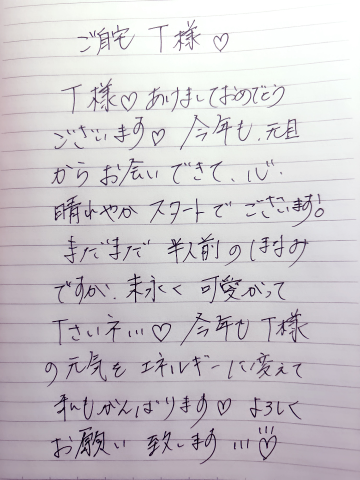 ご自宅 T様♡
T様♡ あけましておめでとう
ございます♡ 今年も、元旦
からお会いできて、心、
晴れやか スタートでございます!
まだまだ 半人前の
ですが、末永く 可愛がって
下さいネ…♡ 今年もT様
の元気を エネルギーに変えて
私もがんばります♡ よろしく
お願い 致します…♡